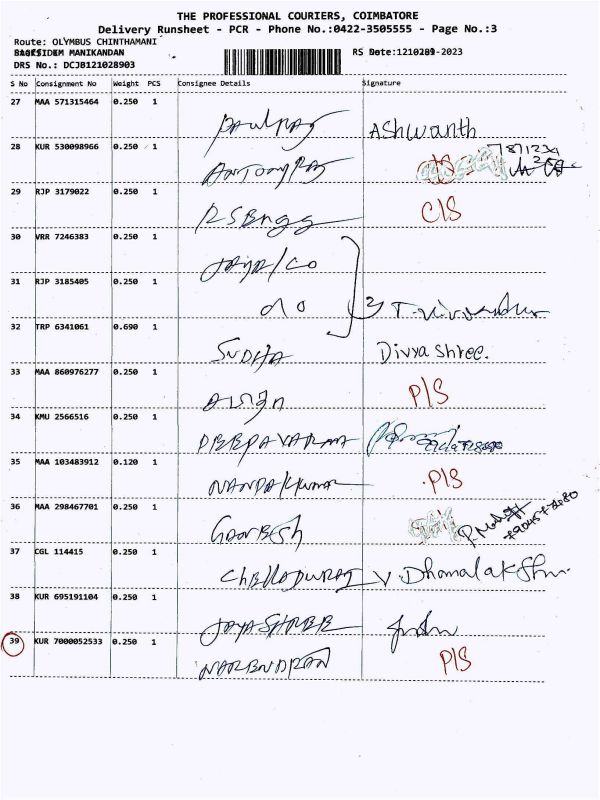 THE PROFESSIONAL COURIERS, COIMBATORE
Delivery Runsheet - PCR - Phone No.:0422-3505555 - Page No.:3
Route: OLYMBUS CHINTHAMANI
MANIKANDAN
RS Date:
-2023
DRS No.: DCJB121028903
S No Consignment No Weight PCS Consignee Details Signature
27 MAA 571315464 0.250 1 Paulraj Ashwanth
28 KUR 530098966 0.250 1 Antony Raj
29 RJP 3179022 0.250 1 C/S
30 VRR 7246383 0.250 1 Jaya/Co
31 RJP 3185405 0.250 1 do
32 TRP 6341061 0.690 1 SUDHA Divya Shree.
33 MAA 860976277 0.250 1 P/S
34 KMU 2566516 0.250 1 DEEPAVARMA
35 MAA 103483912 0.120 1 NANDAKKUMAR P/S
36 MAA 298467701 0.250 1
37 CGL 114415 0.250 1 CHELLADURAI V. Dhamalakshmi.
38 KUR 695191104 0.250 1 JAYASHREE
39 KUR 7000052533 0.250 1 NARENDRAN P/S